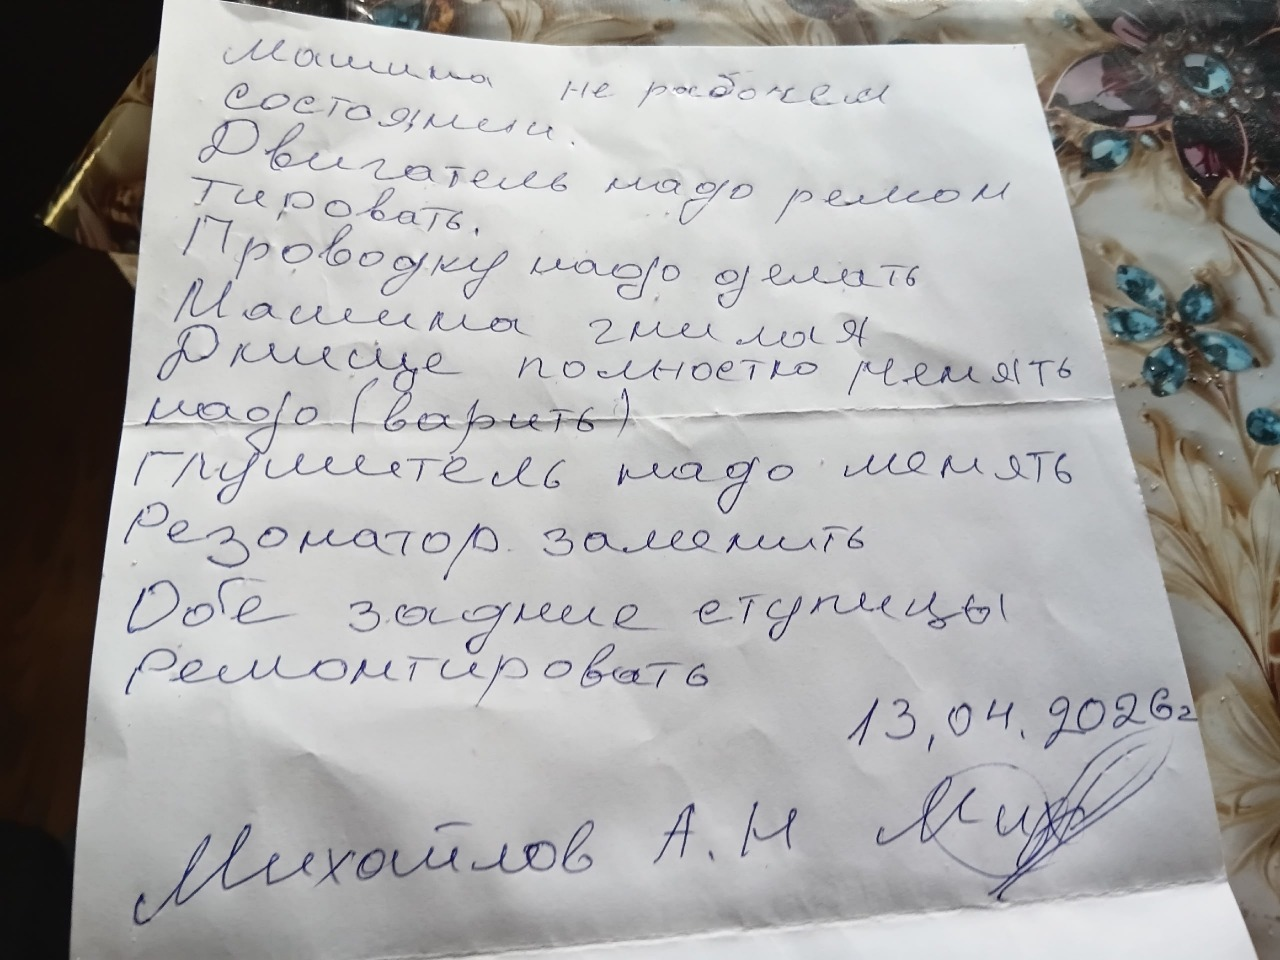 Машина не рабочем
состоянии.
Двигатель надо ремон
тировать.
Проводку надо делать
Машина гнилая
Днище полностю менять
надо (варить)
Глушитель надо менять
Резонатор заменить
Обе задние ступицы
ремонтировать
13.04.2026г
Михайлов А.Н Мих